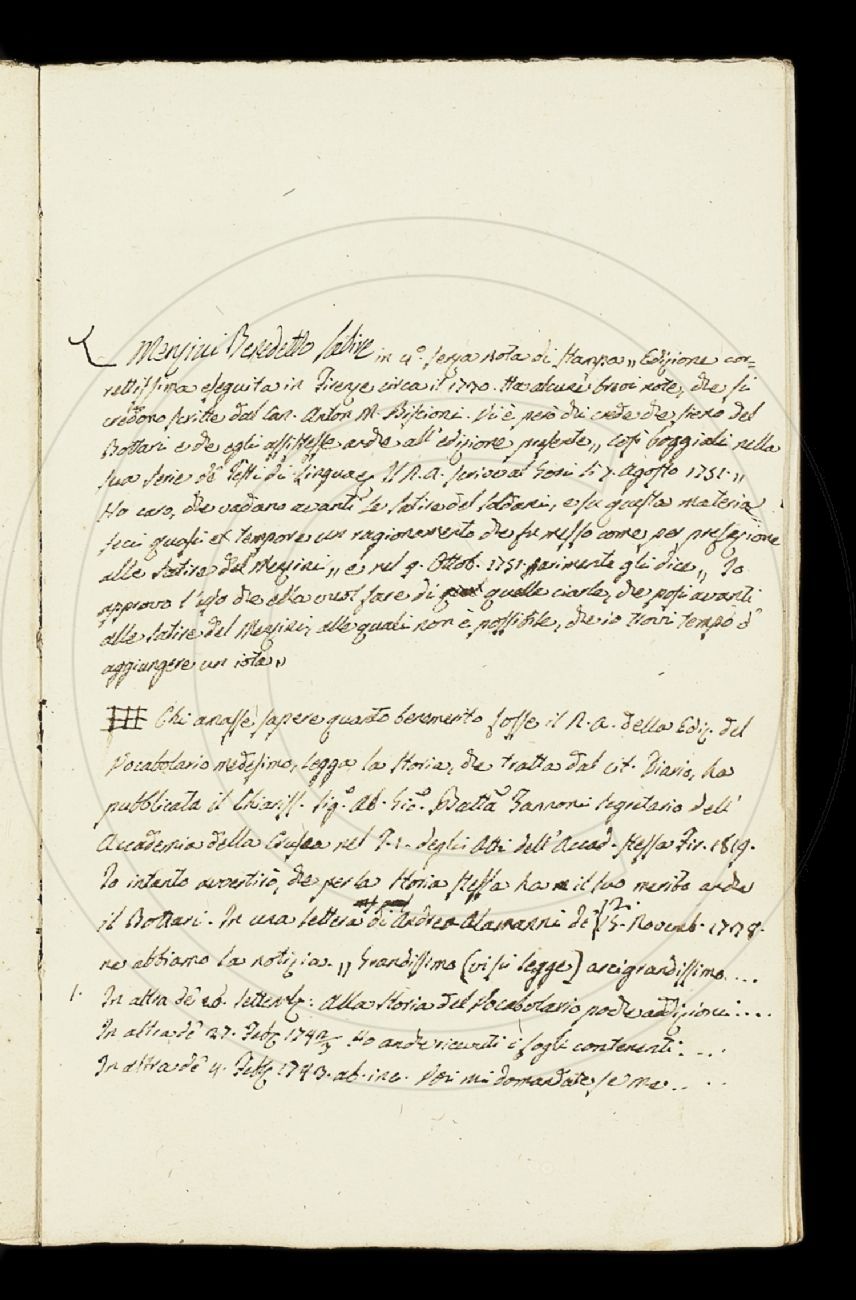 Menzini Benedetto Satire in 4.º senza nota di stampa „ Edizione cor=
rettissima eseguita in Firenze circa il 1770. Ha alcune brevi note, che si
credono scritte dal Can. Anton M. Biscioni. Vi è però chi crede che sieno del
Bottari e che egli assistesse anche all'edizione presente „ così Poggiali nella
sua serie de' Testi di Lingua. Il N. A. scrive al Gori li 7. Agosto 1751. „
Ho caro, che vadano avanti le satire del Soldani, e su questa materia
feci quasi ex tempore un ragionamento che fu messo come per prefazione
alle satire del Menzini „ e nel 9. Ottob. 1751. parimente gli dice „ Io
approvo l'uso che ella vuol fare di quelle ciarle, che posi avanti
alle satire del Menzini, alle quali non è possibile, che io trovi tempo d'
aggiungere un iota „
Chi amasse sapere quanto benemerito fosse il N. A. della Ediz. del
Vocabolario medesimo, legga la storia, che tratta dal cit. Diario, ha
pubblicata il Chiariss. Sig.º Ab. Gio. Batta Zannoni Segretario dell'
Accademia della Crusca nel T. 1. degli Atti dell'Accad. stessa Fir. 1819.
Io intanto avvertirò, che per la storia stessa ha il suo merito anche
il Bottari. In una lettera di Andrea Alamanni de' 12. 15. Novemb. 1738.
ne abbiamo la notizia. „ Grandissimo (vi si legge) arcigrandissimo....
1. In altra de' 26. Settemb: Alla storia del Vocabolario poche addizioni....
In altra de' 27. Febb. 174 2/3 Ho anche ricevuti i fogli contenenti....
In altra de' 4. Febb. 1743. ab. inc. Voi mi domandate, se me....